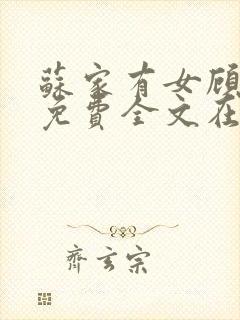 蘇家有女顾
免費全文在
齊玄宗